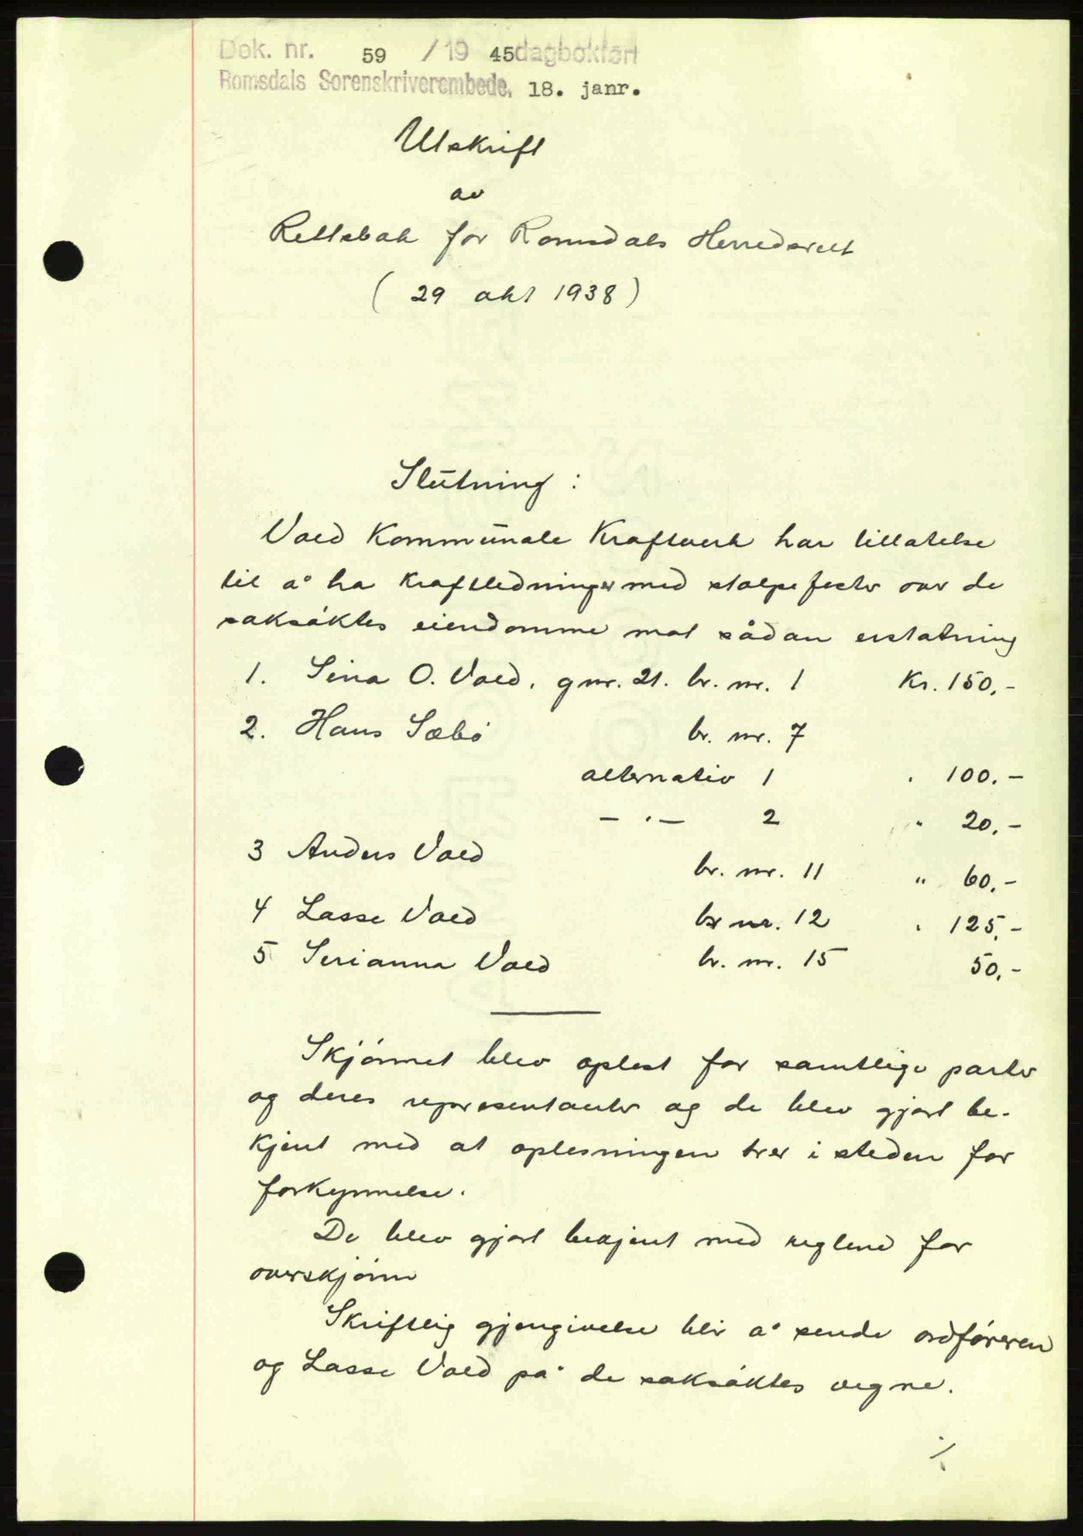 Dok. nr. 59 /19 45 dagbokført
Romsdals Sorenskriverembede, 18. janr.
Utskrift
av
Rettsbok for Romsdals Herredsrett
( 29 okt 1938 )
Slutning :
Voed Kommunale Kraftverk har tillatelse
til å ha kraftledninger med stolpefester over de
saksøktes eiendomme mot sådan erstatning
1. Sina O. Voed, gnr. 21. br. nr. 1 Kr. 150,-
2. Hans Sæbø br. nr. 7
alternativ 1 " 100.-
- " - 2 " 20,-
3 Anders Voed br. nr. 11 " 60,-
4 Lasse Voed br nr. 12 " 125,-
5 Serianna Voed br. nr. 15 50,-
Skjønnet blev oplest for samtlige parter
og deres representanter og de blev gjort be-
kjent med at oplesningen trer i steden for
forkynnelse.
De blev gjort bekjent med reglene for
overskjønn
Skriftlig gjengivelse blir å sende ordføreren
og Lasse Voed på de saksøktes vegne.
./.